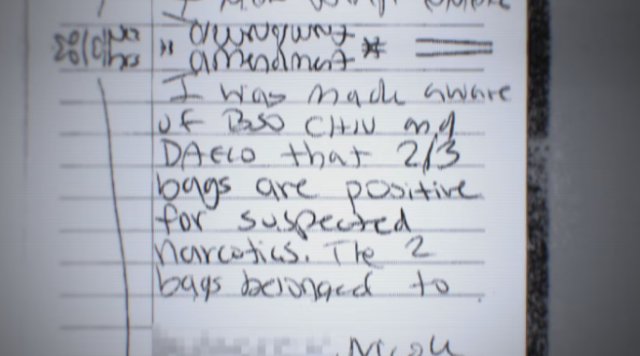 amendment *
I was made aware
of BSO CHIU and
DAECO that 2/3
bags are positive
for suspected
narcotics. The 2
bags belonged to